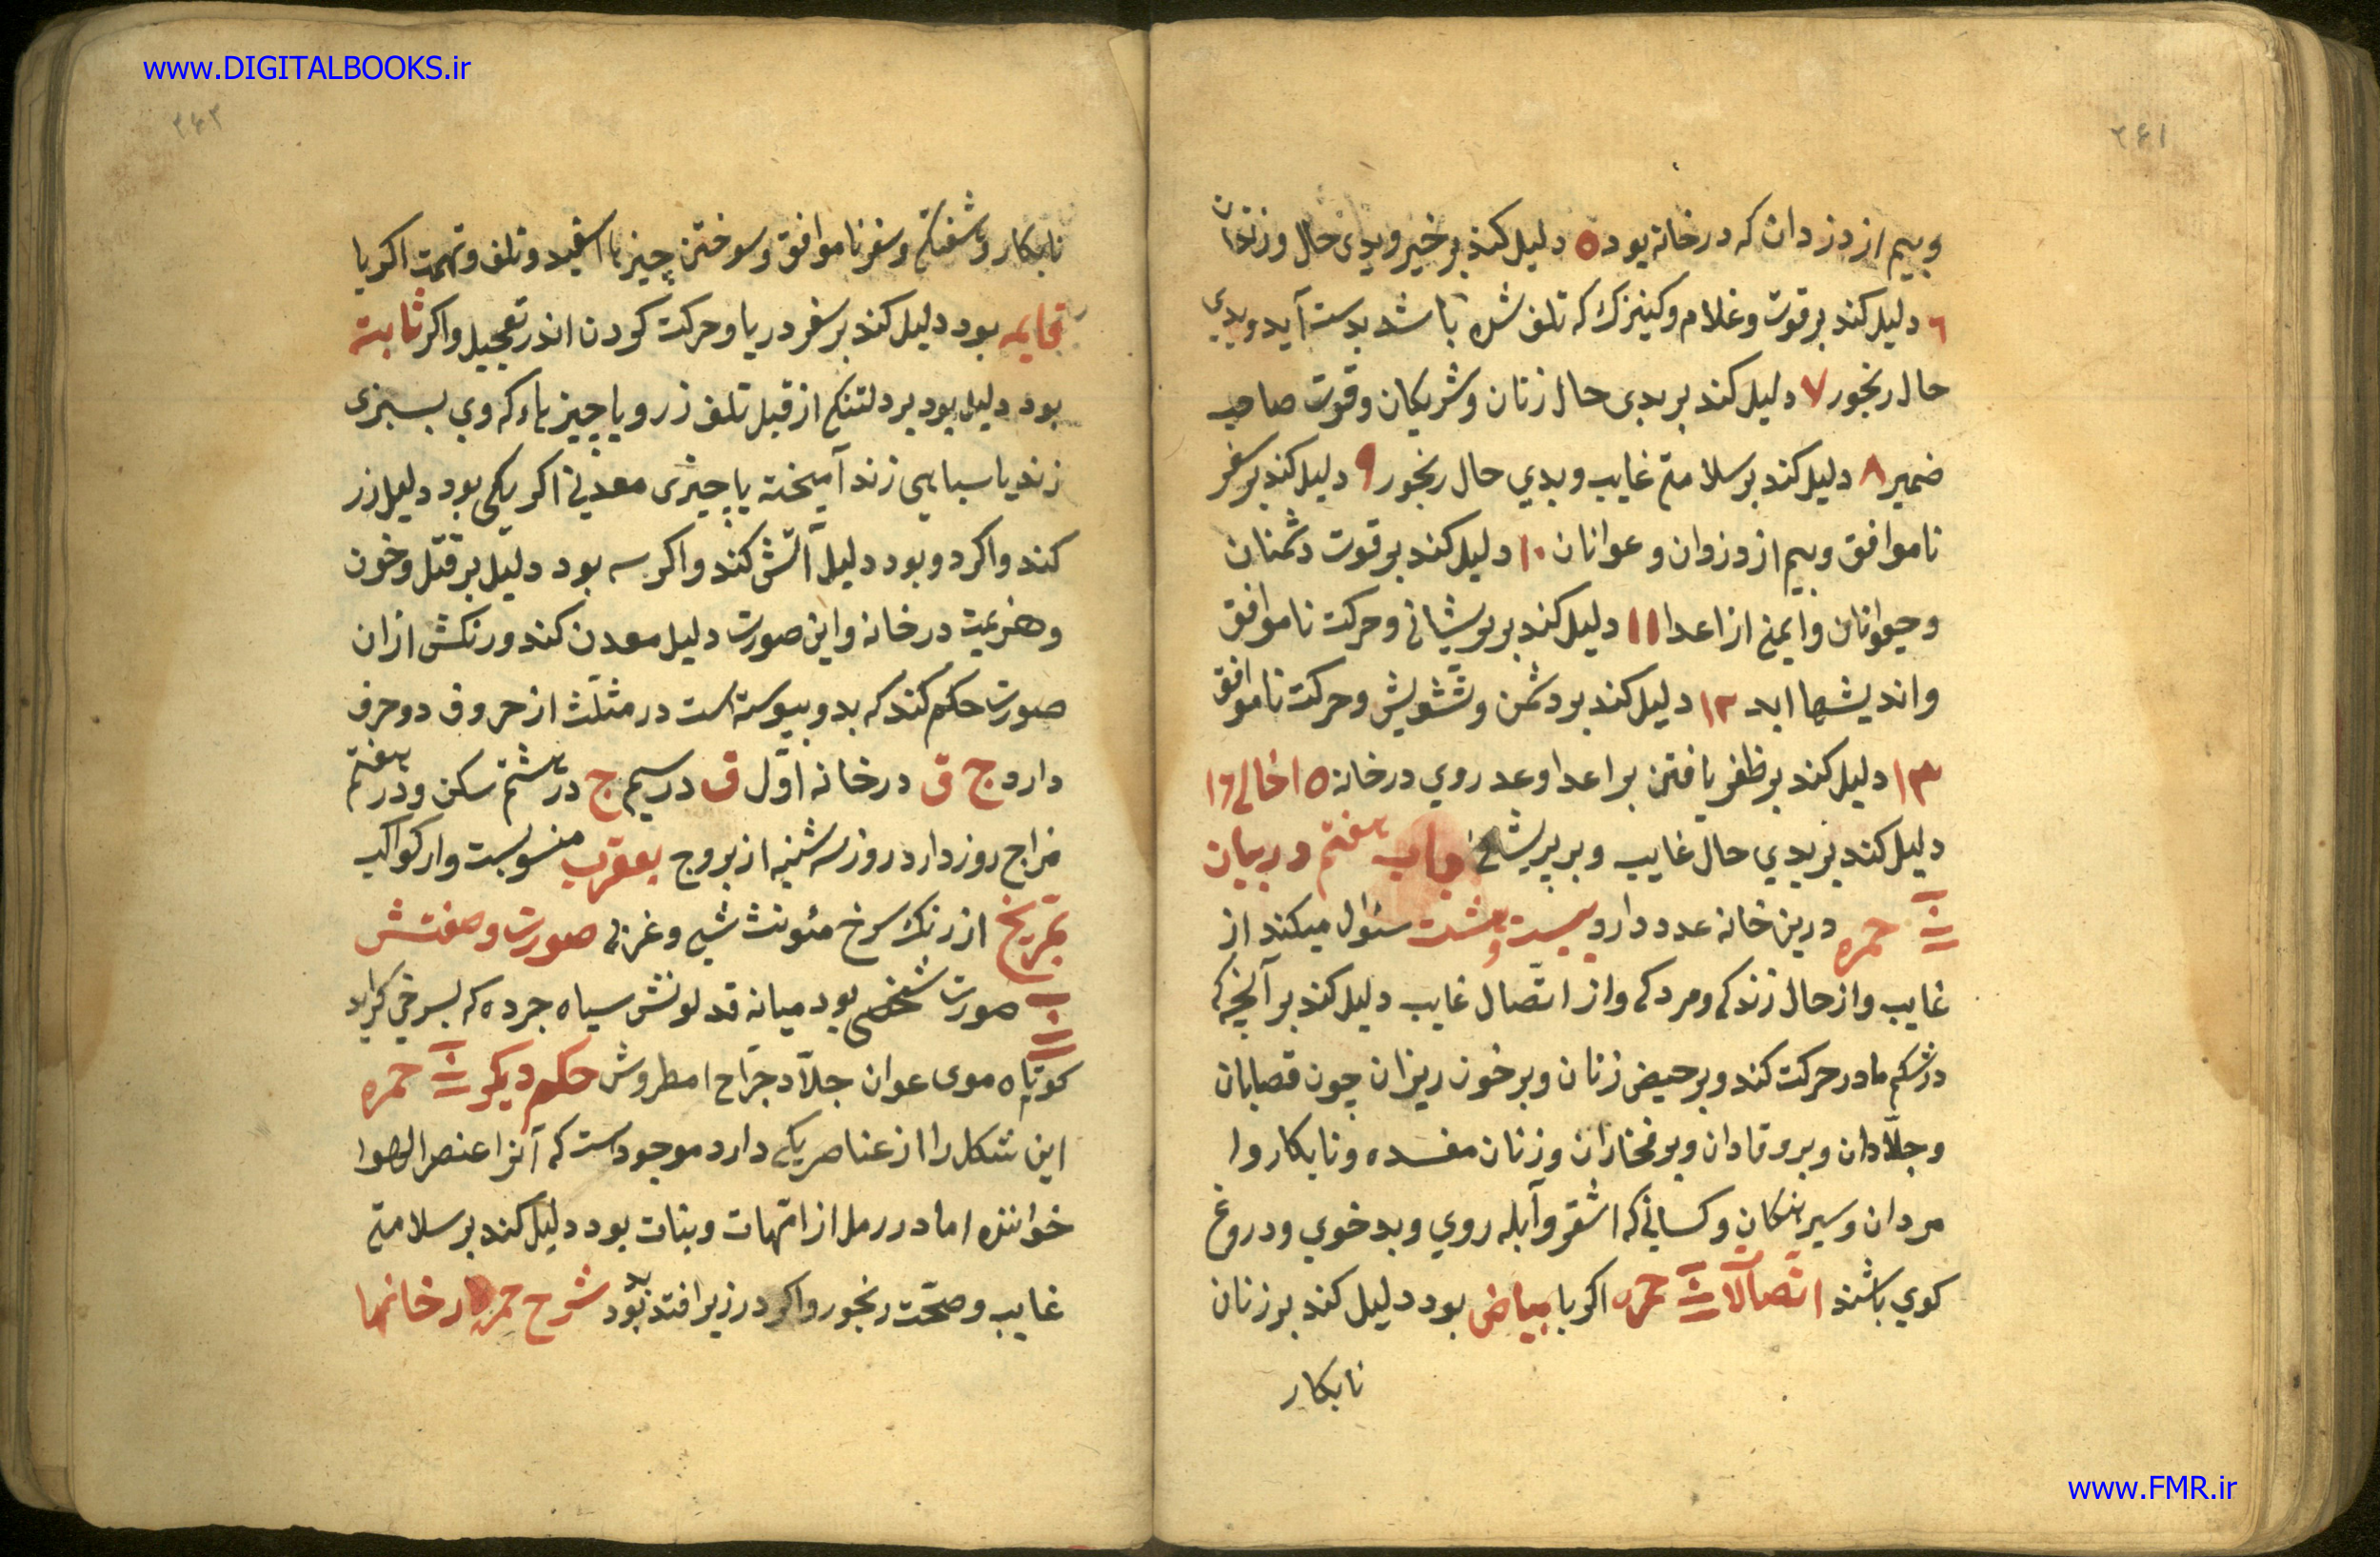 www.DIGITALBOOKS.ir
۲۶۱
وبیم از دزدان که در خانه بود ۵ دلیل کند بر خیر وبدی حال وزندان
٦ دلیل کند بر قوت وغلام وکنیزک که تلف شده باشد بدست آید وبدی
حال رنجور ٧ دلیل کند بر بدی حال زنان وشریکان وقوت صاحب
ضمیر ٨ دلیل کند بر سلامتی غایب وبدي حال رنجور ٩ دلیل کند بر سفر
ناموافق وبیم از دزوان وعوانان ١٠ دلیل کند بر قوت دشمنان
وحیوانان وایمنی از اعدا ١١ دلیل کند بر پریشانی وحرکت ناموافق
واندیشها ابد ١٢ دلیل کند بر دشمن وتشویش وحرکت ناموافق
١٣ دلیل کند بر ظفر یافتن بر اعدا وعد روي در خانه ١٥ خالی ١٦
دلیل کند بر بدي حال غایب وبر پریشانی باب هفتم در بیان
حمره درین خانه عدد دارد بیست وهشت سئوال میکند از
غایب واز حال زندکی ومردکی واز اتصال غایب دلیل کند بر آنچه که
در شکم مادر حرکت کند وبر حیض زنان وبر خون ریزان چون قصابان
وجلّادان وبر وقادان وبر فخاران وزنان مفسده ونابکار وا
مردان وسرهنکان وکسانی که اشقر وآبله روي وبد خوي ودروغ
کوي باشند اتصالات حمره اکر با بیاض بود دلیل کند بر زنان
نابکار
۲۶۲
نابکار وشفتکی وسفر ناموافق وسوختن چیزها اسفید وتلف وتهمت اکر با
قایمه بود دلیل کند بر سفر دریا وحرکت کردن اندر تعجیل واکر ثابته
بود دلیل بود بر دلتنکی از قبل تلف زر ویا چیزهاء که وي بسبزی
زند یا سیاهی زند آمیخته یا چیزی معدنی اکر یکی بود دلیل زر
کند واکر دو بود دلیل آتش کند واکر سه بود دلیل بر قتل وخون
وهزیمت در خانه واین صورت دلیل معدن کند ورنکش از ان
صورت حکم کند که بدو پیوسته است در مثلّث از حروف دو حرف
دارد ج ق در خانه اوّل ق در سیم ج در هشتم سکن ودر هفتم
مزاج روز دارد روز سه شنبه از بروج بعقرب منسوبست واز کواکب
بمریخ از رنک سرخ مئونث شبی وغربی صورت وصفتش
صورت شخصی بود میانه قد لونش سیاه جرده که بسرخی کراید
کوتاه موی عوان جلّاد جرّاح امطروش حکم دیکر حمره
این شکل را از عناصر یکی دارد موجودست که آنرا عنصر الهوا
خوانند اما در رمل از امّهات وبنات بود دلیل کند بر سلامتی
غایب وصحّت رنجور واکر در زیر افتد بد بود شرح حمره در خانها
www.FMR.ir